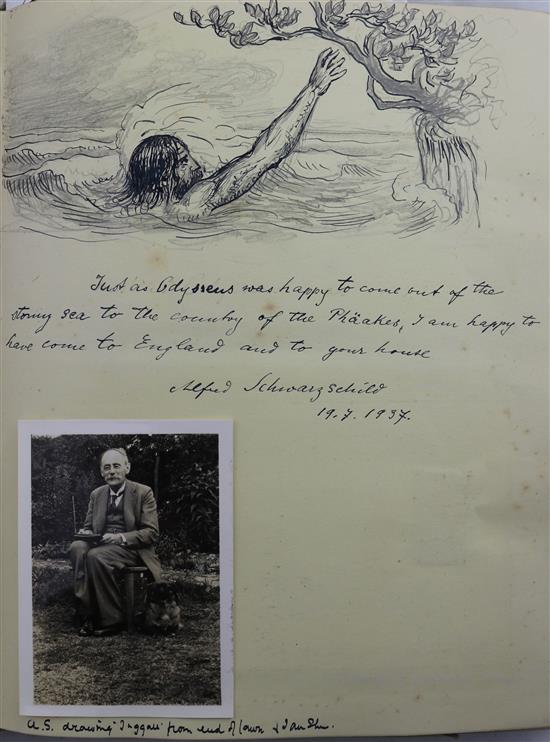 Just as Odysseus was happy to come out of the
stormy sea to the country of the Phäakes, I am happy to
have come to England and to your house
Alfred Schwarzschild
19.7.1937.
A.S. drawing from end of lawn